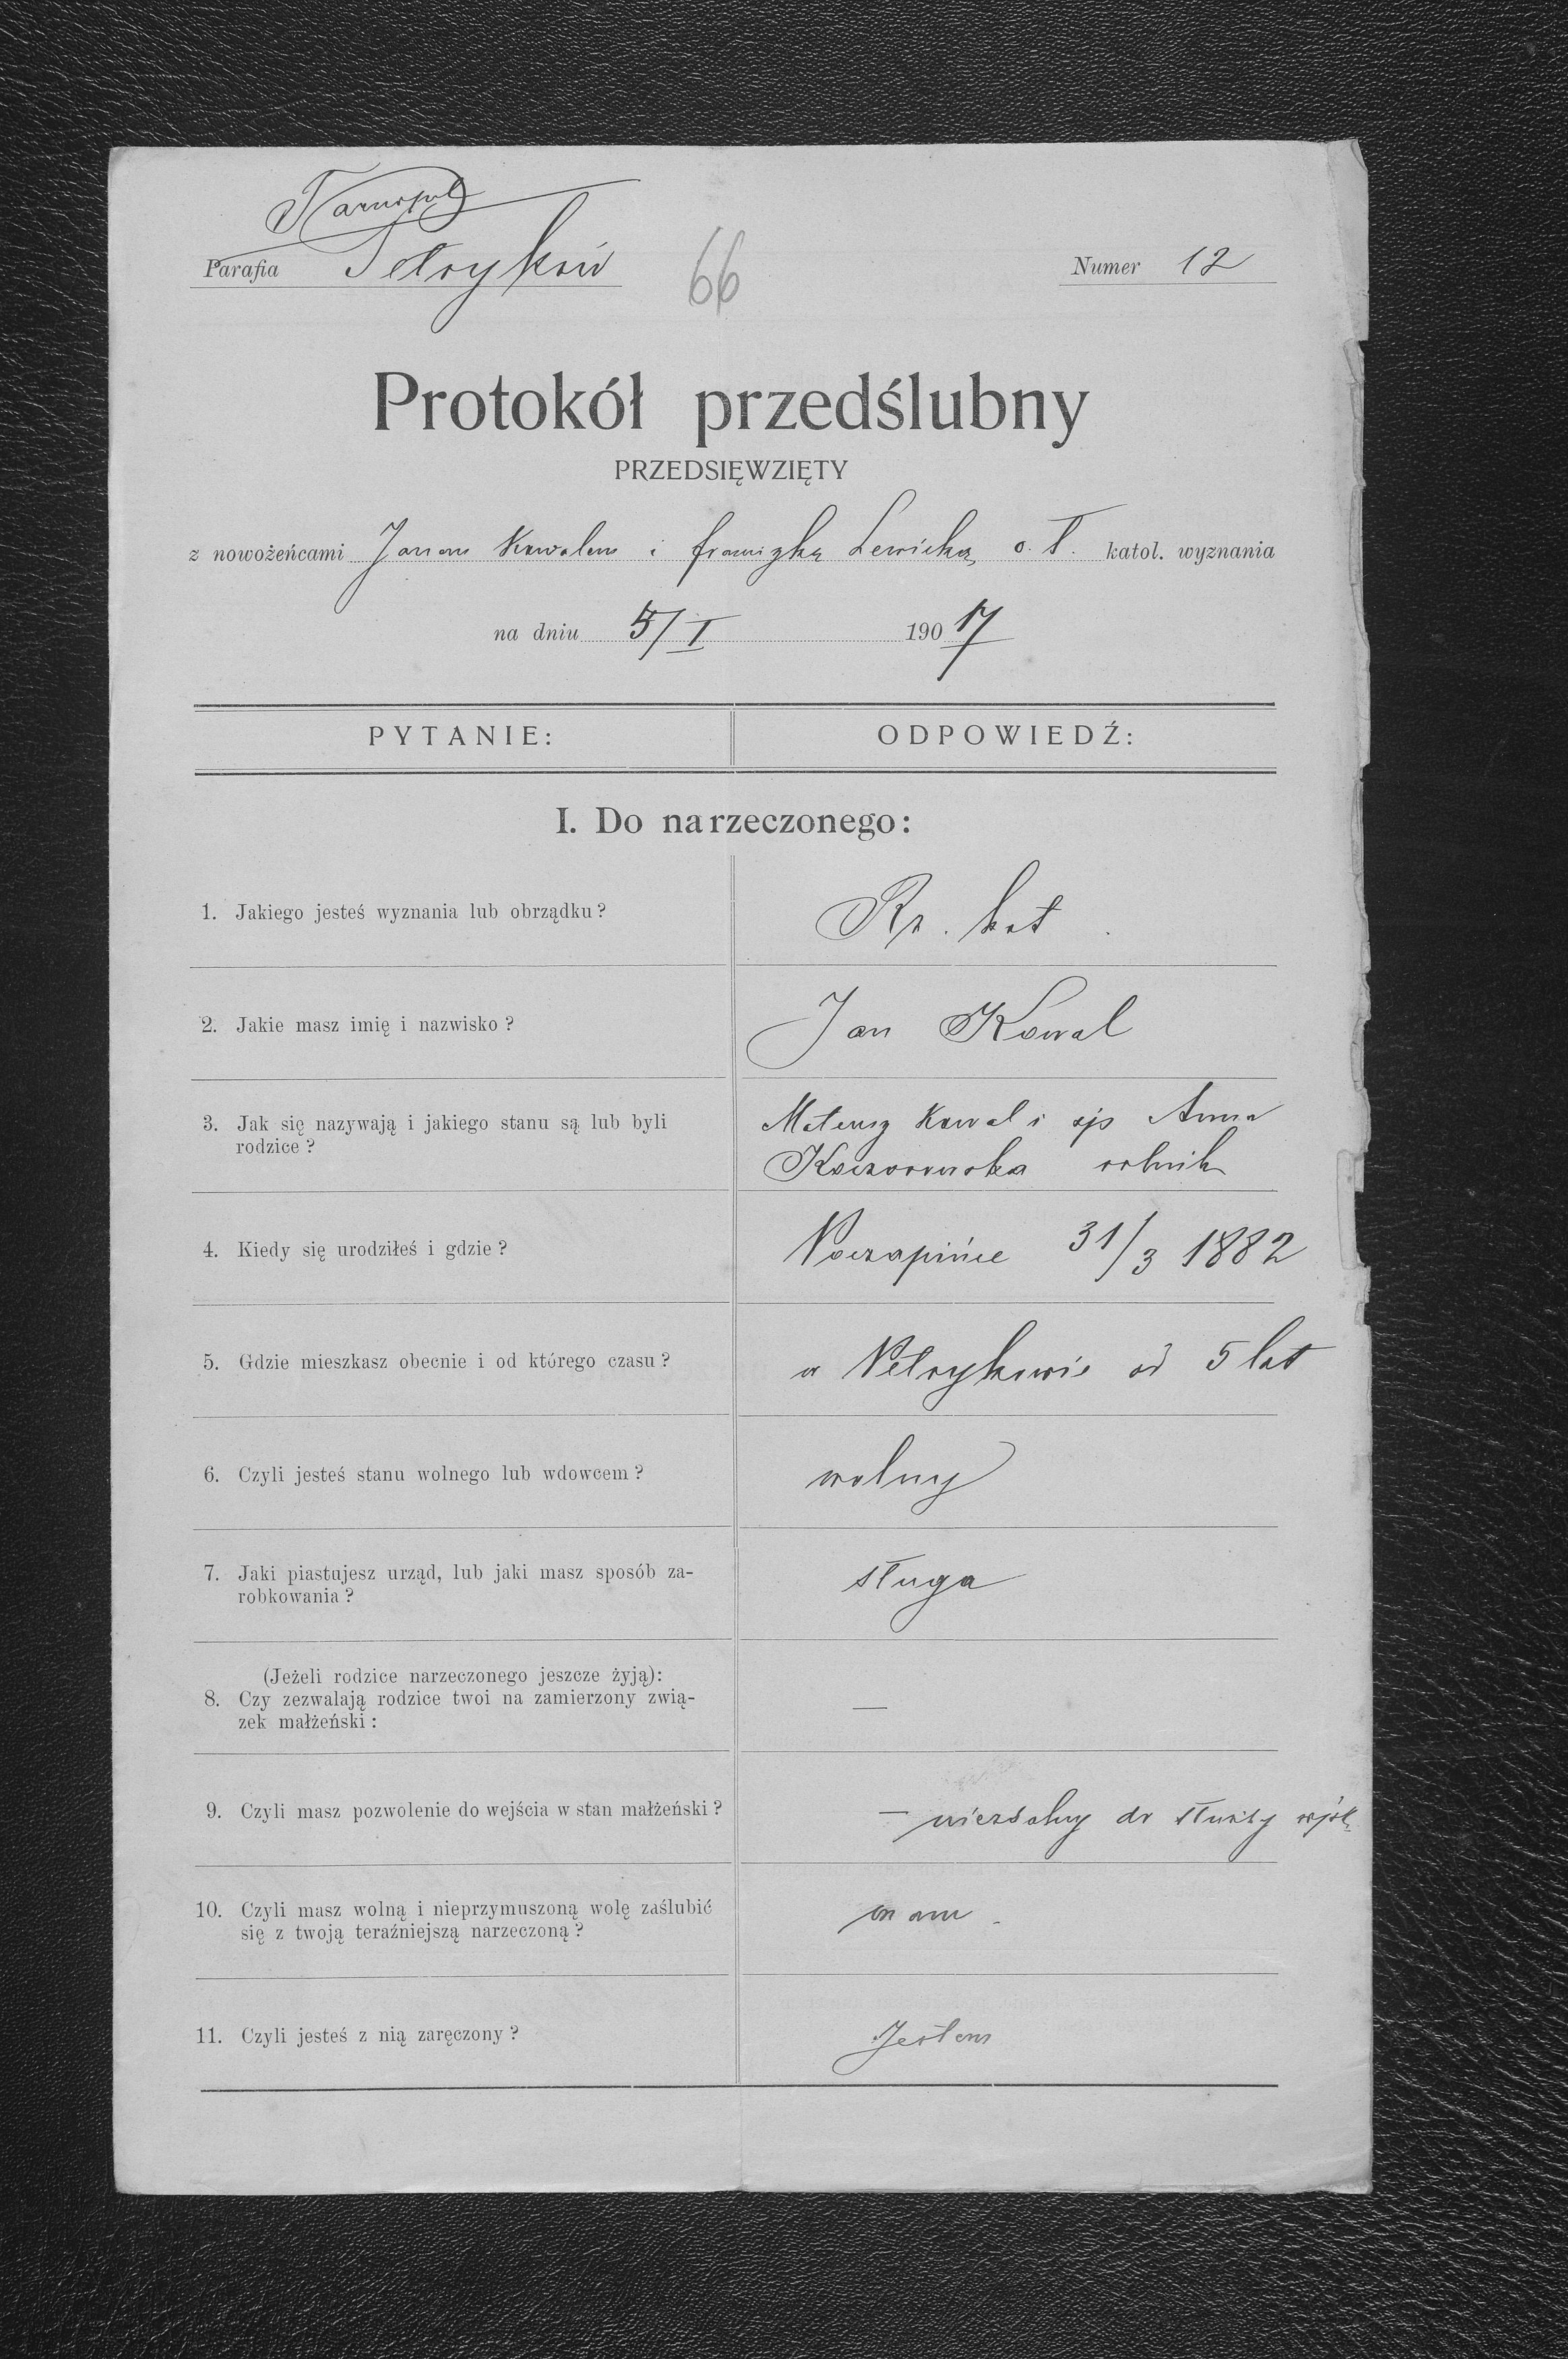 Tarnopol
Parafia Petryków
66
Numer 12
Protokół przedślubny
PRZEDSIĘWZIĘTY
z nowożeńcami Janem Kowalem i franciszką Lewicką o. ł. katol. wyznania
na dniu 5/I 1907 17
PYTANIE: ODPOWIEDŹ:
I. Do narzeczonego:
1. Jakiego jesteś wyznania lub obrządku? Rz. kat
2. Jakie masz imię i nazwisko? Jan Kowal
3. Jak się nazywają i jakiego stanu są lub byli Mateusz Kowal i śp Anna
rodzice? Kaczorowska rolnik
4. Kiedy się urodziłeś i gdzie? Poczapińce 31/3 1882
5. Gdzie mieszkasz obecnie i od którego czasu? w Petrykowie od 5 lat
6. Czyli jesteś stanu wolnego lub wdowcem? wolny
7. Jaki piastujesz urząd, lub jaki masz sposób za- sługa
robkowania?
(Jeżeli rodzice narzeczonego jeszcze żyją):
8. Czy zezwalają rodzice twoi na zamierzony zwią- —
zek małżeński:
9. Czyli masz pozwolenie do wejścia w stan małżeński? — niezdolny do służby wojsk.
10. Czyli masz wolną i nieprzymuszoną wolę zaślubić mam.
się z twoją teraźniejszą narzeczoną?
11. Czyli jesteś z nią zaręczony? Jestem